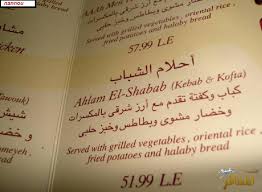 nannou
(AAh Men
Served with grilled vegetables, oriental rice
fried potatoes and halaby bread
57.99 L.E
أحلام الشباب
Ahlam El-Shabab (Kebab & Kofta)
كباب وكفتة تقدم مع أرز شرقى بالمكسرات
وخضار مشوى وبطاطس وخبز حلبى
Served with grilled vegetables, oriental rice,
fried potatoes and halaby bread
51.99 L.E